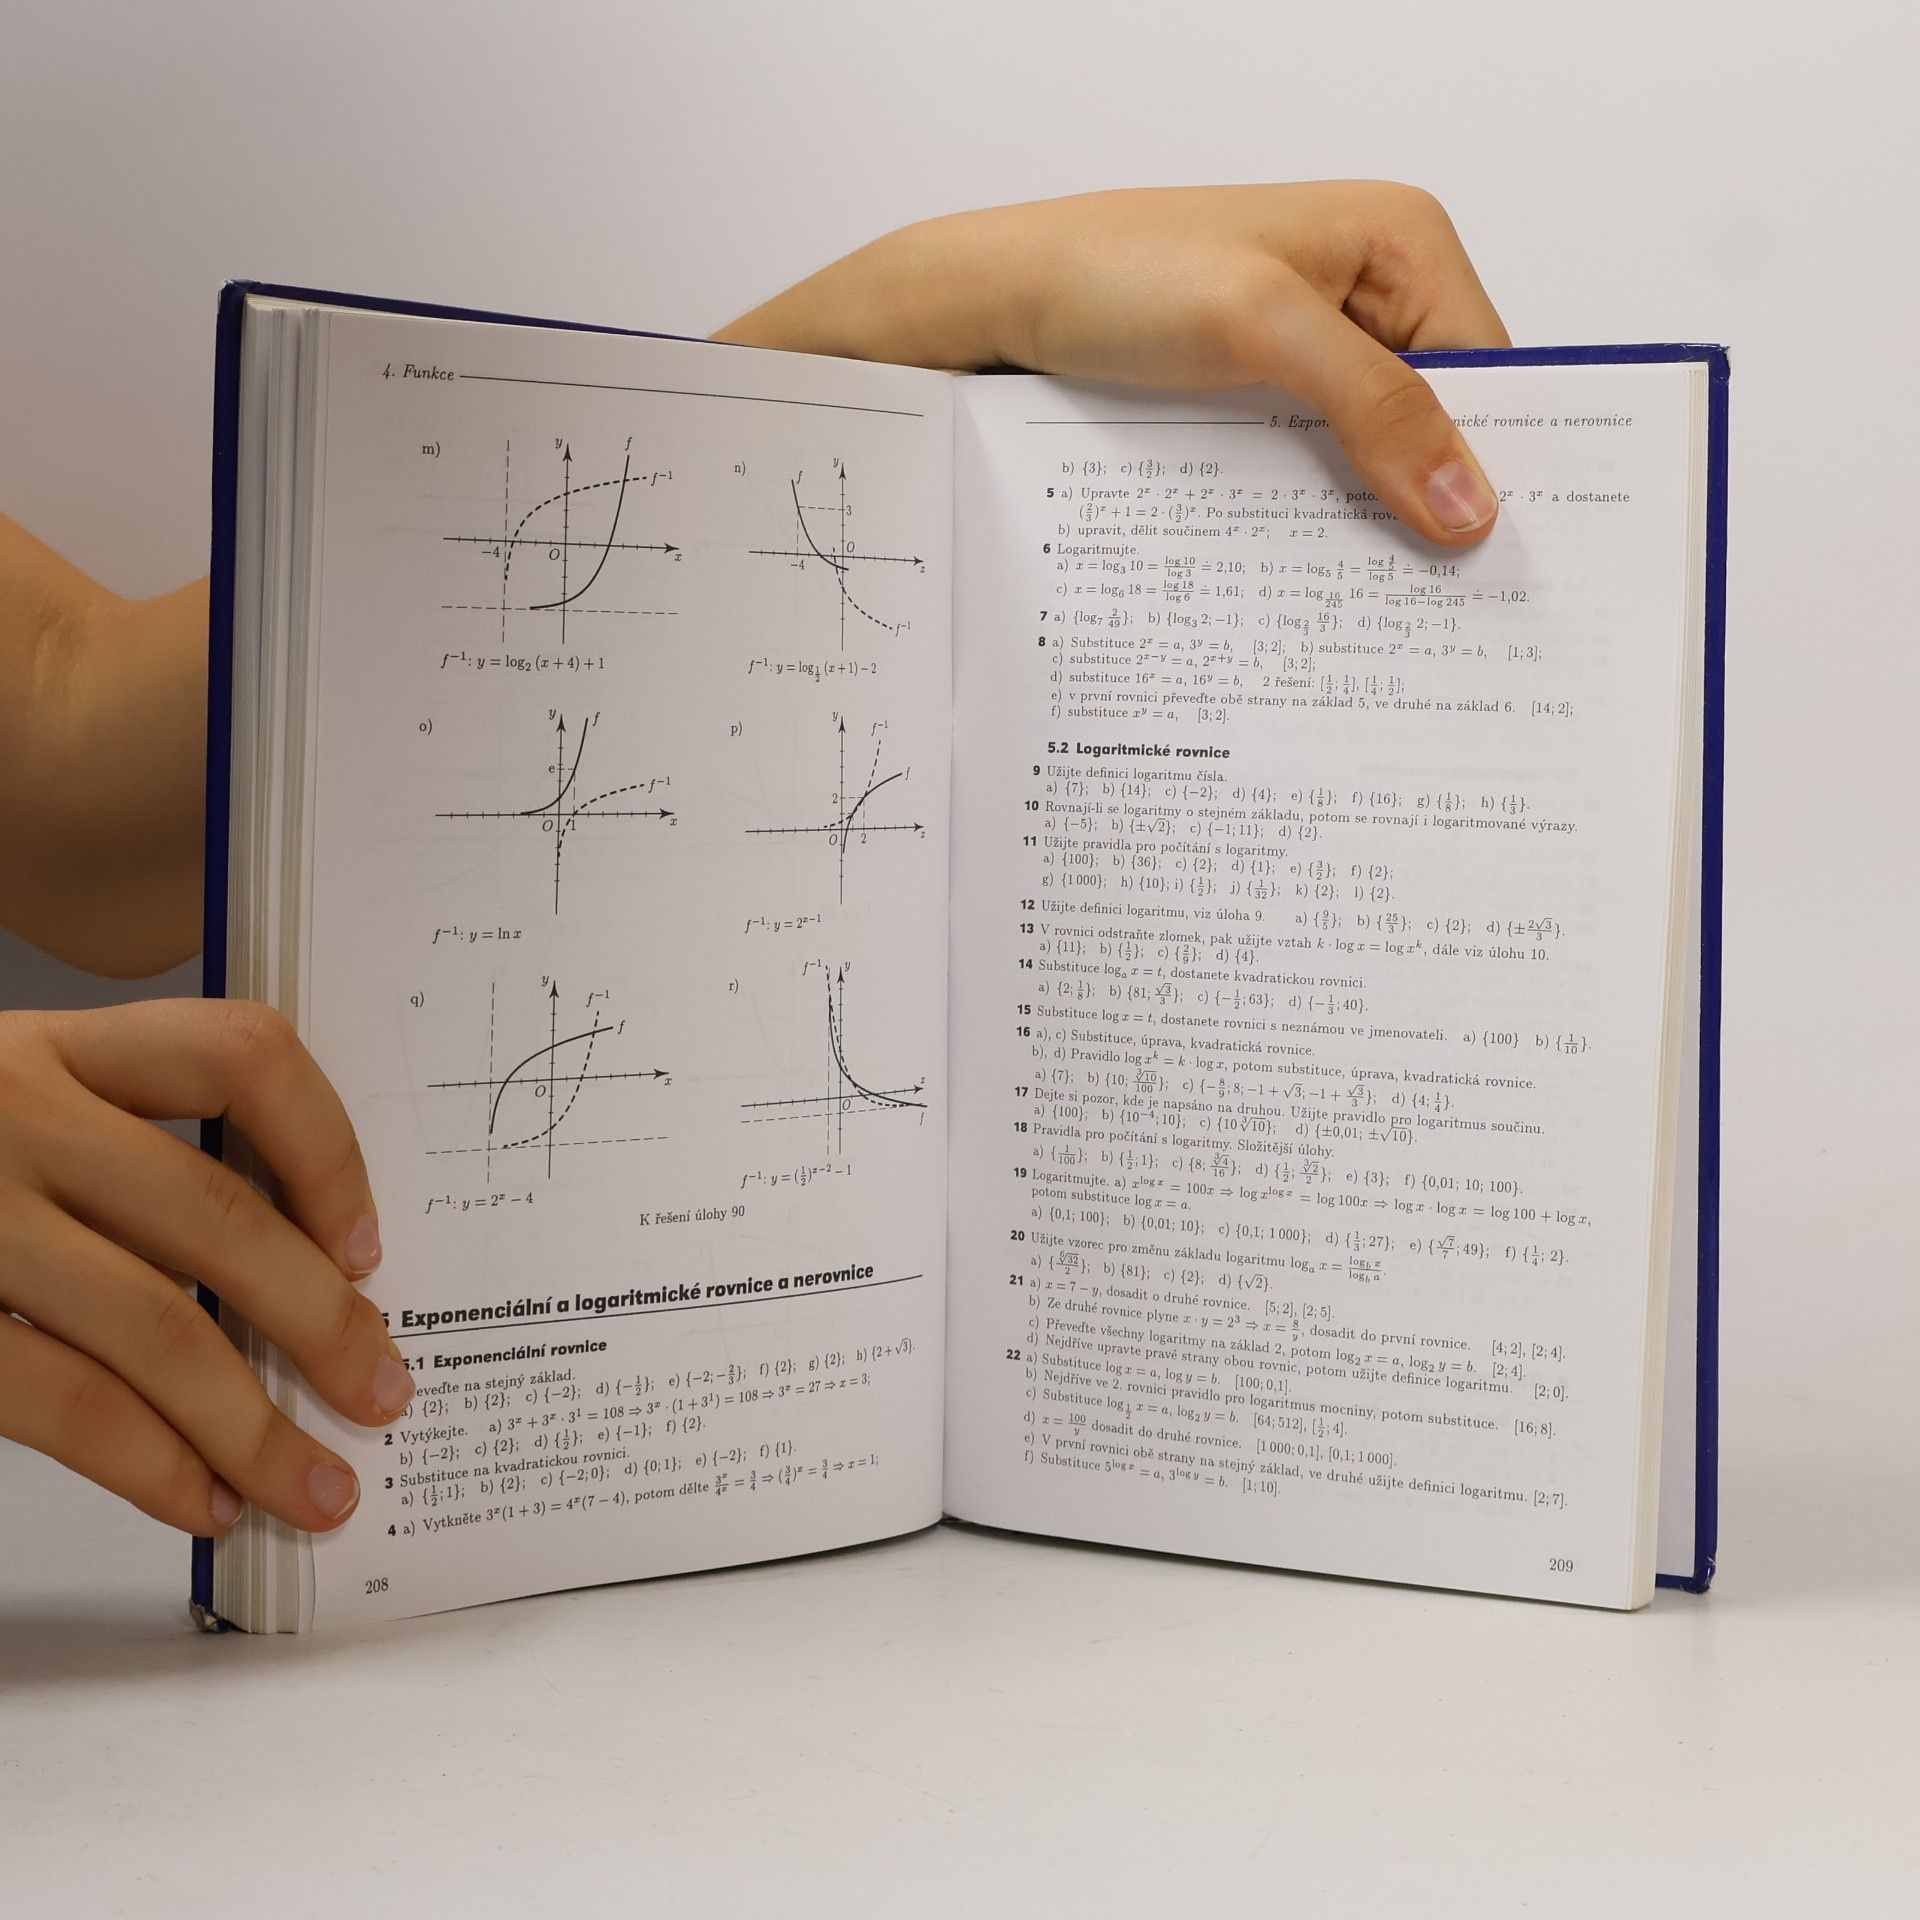 4. Funkce
m)
y
f
f⁻¹
−4
O
x
f⁻¹: y = log₂ (x + 4) + 1
n)
f
y
3
O
−4
x
f⁻¹
f⁻¹: y = log_{1/2} (x + 1) − 2
o)
y
f
e
f⁻¹
O
1
x
f⁻¹: y = ln x
p)
y
f⁻¹
f
2
O
2
x
f⁻¹: y = 2ˣ⁻¹
q)
y
f⁻¹
f
O
x
f⁻¹: y = 2ˣ − 4
r)
f⁻¹
y
x
O
f
f⁻¹: y = (1/2)ˣ⁻² − 1
K řešení úlohy 90
Exponenciální a logaritmické rovnice a nerovnice
5.1 Exponenciální rovnice
na stejný základ.
a) {2}; b) {2}; c) {−2}; d) {−1/2}; e) {−2; −2/3}; f) {2}; g) {2}; h) {2 + √3}.
2 Vytýkejte. a) 3ˣ + 3ˣ · 3¹ = 108 ⇒ 3ˣ · (1 + 3¹) = 108 ⇒ 3ˣ = 27 ⇒ x = 3;
b) {−2}; c) {2}; d) {1/2}; e) {−1}; f) {2}.
3 Substituce na kvadratickou rovnici.
a) {1/2; 1}; b) {2}; c) {−2; 0}; d) {0; 1}; e) {−2}; f) {1}.
4 a) Vytkněte 3ˣ(1 + 3) = 4ˣ(7 − 4), potom dělte 3ˣ/4ˣ = 3/4 ⇒ (3/4)ˣ = 3/4 ⇒ x = 1;
208
5. rovnice a nerovnice
b) {3}; c) {3/2}; d) {2}.
5 a) Upravte 2ˣ · 2ˣ + 2ˣ · 3ˣ = 2 · 3ˣ · 3ˣ, 2ˣ · 3ˣ a dostanete
(2/3)ˣ + 1 = 2 · (3/2)ˣ. Po substituci kvadratická
b) upravit, dělit součinem 4ˣ · 2ˣ; x = 2.
6 Logaritmujte.
a) x = log₃ 10 = log 10/log 3 ≐ 2,10; b) x = log₅ 4/5 = log 4/5/log 5 ≐ −0,14;
c) x = log₆ 18 = log 18/log 6 ≐ 1,61; d) x = log_{16/245} 16 = log 16/(log 16−log 245) ≐ −1,02.
7 a) {log₇ 2/49}; b) {log₃ 2; −1}; c) {log_{2/3} 16/3}; d) {log_{2/3} 2; −1}.
8 a) Substituce 2ˣ = a, 3ʸ = b, [3; 2]; b) substituce 2ˣ = a, 3ʸ = b, [1; 3];
c) substituce 2ˣ⁻ʸ = a, 2ˣ⁺ʸ = b, [3; 2];
d) substituce 16ˣ = a, 16ʸ = b, 2 řešení: [1/2; 1/4], [1/4; 1/2];
e) v první rovnici převeďte obě strany na základ 5, ve druhé na základ 6. [14; 2];
f) substituce xʸ = a, [3; 2].
5.2 Logaritmické rovnice
9 Užijte definici logaritmu čísla.
a) {7}; b) {14}; c) {−2}; d) {4}; e) {1/8}; f) {16}; g) {1/8}; h) {1/3}.
10 Rovnají-li se logaritmy o stejném základu, potom se rovnají i logaritmované výrazy.
a) {−5}; b) {±√2}; c) {−1; 11}; d) {2}.
11 Užijte pravidla pro počítání s logaritmy.
a) {100}; b) {36}; c) {2}; d) {1}; e) {3/2}; f) {2};
g) {1 000}; h) {10}; i) {1/2}; j) {1/32}; k) {2}; l) {2}.
12 Užijte definici logaritmu, viz úloha 9. a) {9/5}; b) {25/3}; c) {2}; d) {±2√3/3}.
13 V rovnici odstraňte zlomek, pak užijte vztah k · log x = log xᵏ, dále viz úlohu 10.
a) {11}; b) {1/2}; c) {2/9}; d) {4}.
14 Substituce logₐ x = t, dostanete kvadratickou rovnici.
a) {2; 1/8}; b) {81; √3/3}; c) {−1/2; 63}; d) {−1/3; 40}.
15 Substituce log x = t, dostanete rovnici s neznámou ve jmenovateli. a) {100} b) {1/10}.
16 a), c) Substituce, úprava, kvadratická rovnice.
b), d) Pravidlo log xᵏ = k · log x, potom substituce, úprava, kvadratická rovnice.
a) {7}; b) {10; ∛10/100}; c) {−8/9; 8; −1 + √3; −1 + √3/3}; d) {4; 1/4}.
17 Dejte si pozor, kde je napsáno na druhou. Užijte pravidlo pro logaritmus součinu.
a) {100}; b) {10⁻⁴; 10}; c) {10 ∛10}; d) {±0,01; ±√10}.
18 Pravidla pro počítání s logaritmy. Složitější úlohy.
a) {1/100}; b) {1/2; 1}; c) {8; ∛4/16}; d) {1/2; ∛2/2}; e) {3}; f) {0,01; 10; 100}.
19 Logaritmujte. a) x^{log x} = 100x ⇒ log x^{log x} = log 100x ⇒ log x · log x = log 100 + log x,
potom substituce log x = a.
a) {0,1; 100}; b) {0,01; 10}; c) {0,1; 1 000}; d) {1/3; 27}; e) {√7/7; 49}; f) {1/4; 2}.
20 Užijte vzorec pro změnu základu logaritmu logₐ x = log_b x/log_b a.
a) {⁶√32/2}; b) {81}; c) {2}; d) {√2}.
21 a) x = 7 − y, dosadit o druhé rovnice. [5; 2], [2; 5].
b) Ze druhé rovnice plyne x · y = 2³ ⇒ x = 8/y, dosadit do první rovnice. [4; 2], [2; 4].
c) Převeďte všechny logaritmy na základ 2, potom log₂ x = a, log₂ y = b. [2; 4].
d) Nejdříve upravte pravé strany obou rovnic, potom užijte definice logaritmu. [2; 0].
22 a) Substituce log x = a, log y = b. [100; 0,1].
b) Nejdříve ve 2. rovnici pravidlo pro logaritmus mocniny, potom substituce. [16; 8].
c) Substituce log_{1/2} x = a, log₂ y = b. [64; 512], [1/2; 4].
d) x = 100/y dosadit do druhé rovnice. [1 000; 0,1], [0,1; 1 000].
e) V první rovnici obě strany na stejný základ, ve druhé užijte definici logaritmu. [2; 7].
f) Substituce 5^{log x} = a, 3^{log y} = b. [1; 10].
209